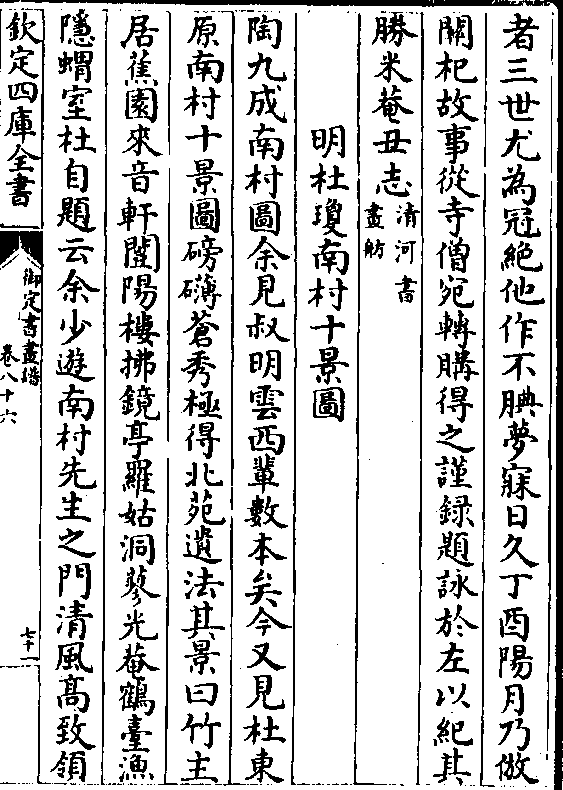 者三世尤為冠絶他作不腆夢寐日久丁酉陽月乃倣
關杞故事從寺僧宛轉購得之謹録題詠於左以紀其
勝米菴丑志清河書畫舫
明杜瓊南村十景圖
陶九成南村圖余見叔明雲西輩數本矣今又見杜東
原南村十景圖磅礴蒼秀極得北苑遺法其景曰竹主
居蕉園來音軒闓陽樓拂鏡亭羅姑洞蓼光菴鶴臺漁
隱蝟室杜自題云余少遊南村先生之門清風高致領
欽定四庫全書
御定書畫譜
卷八十六
七十一